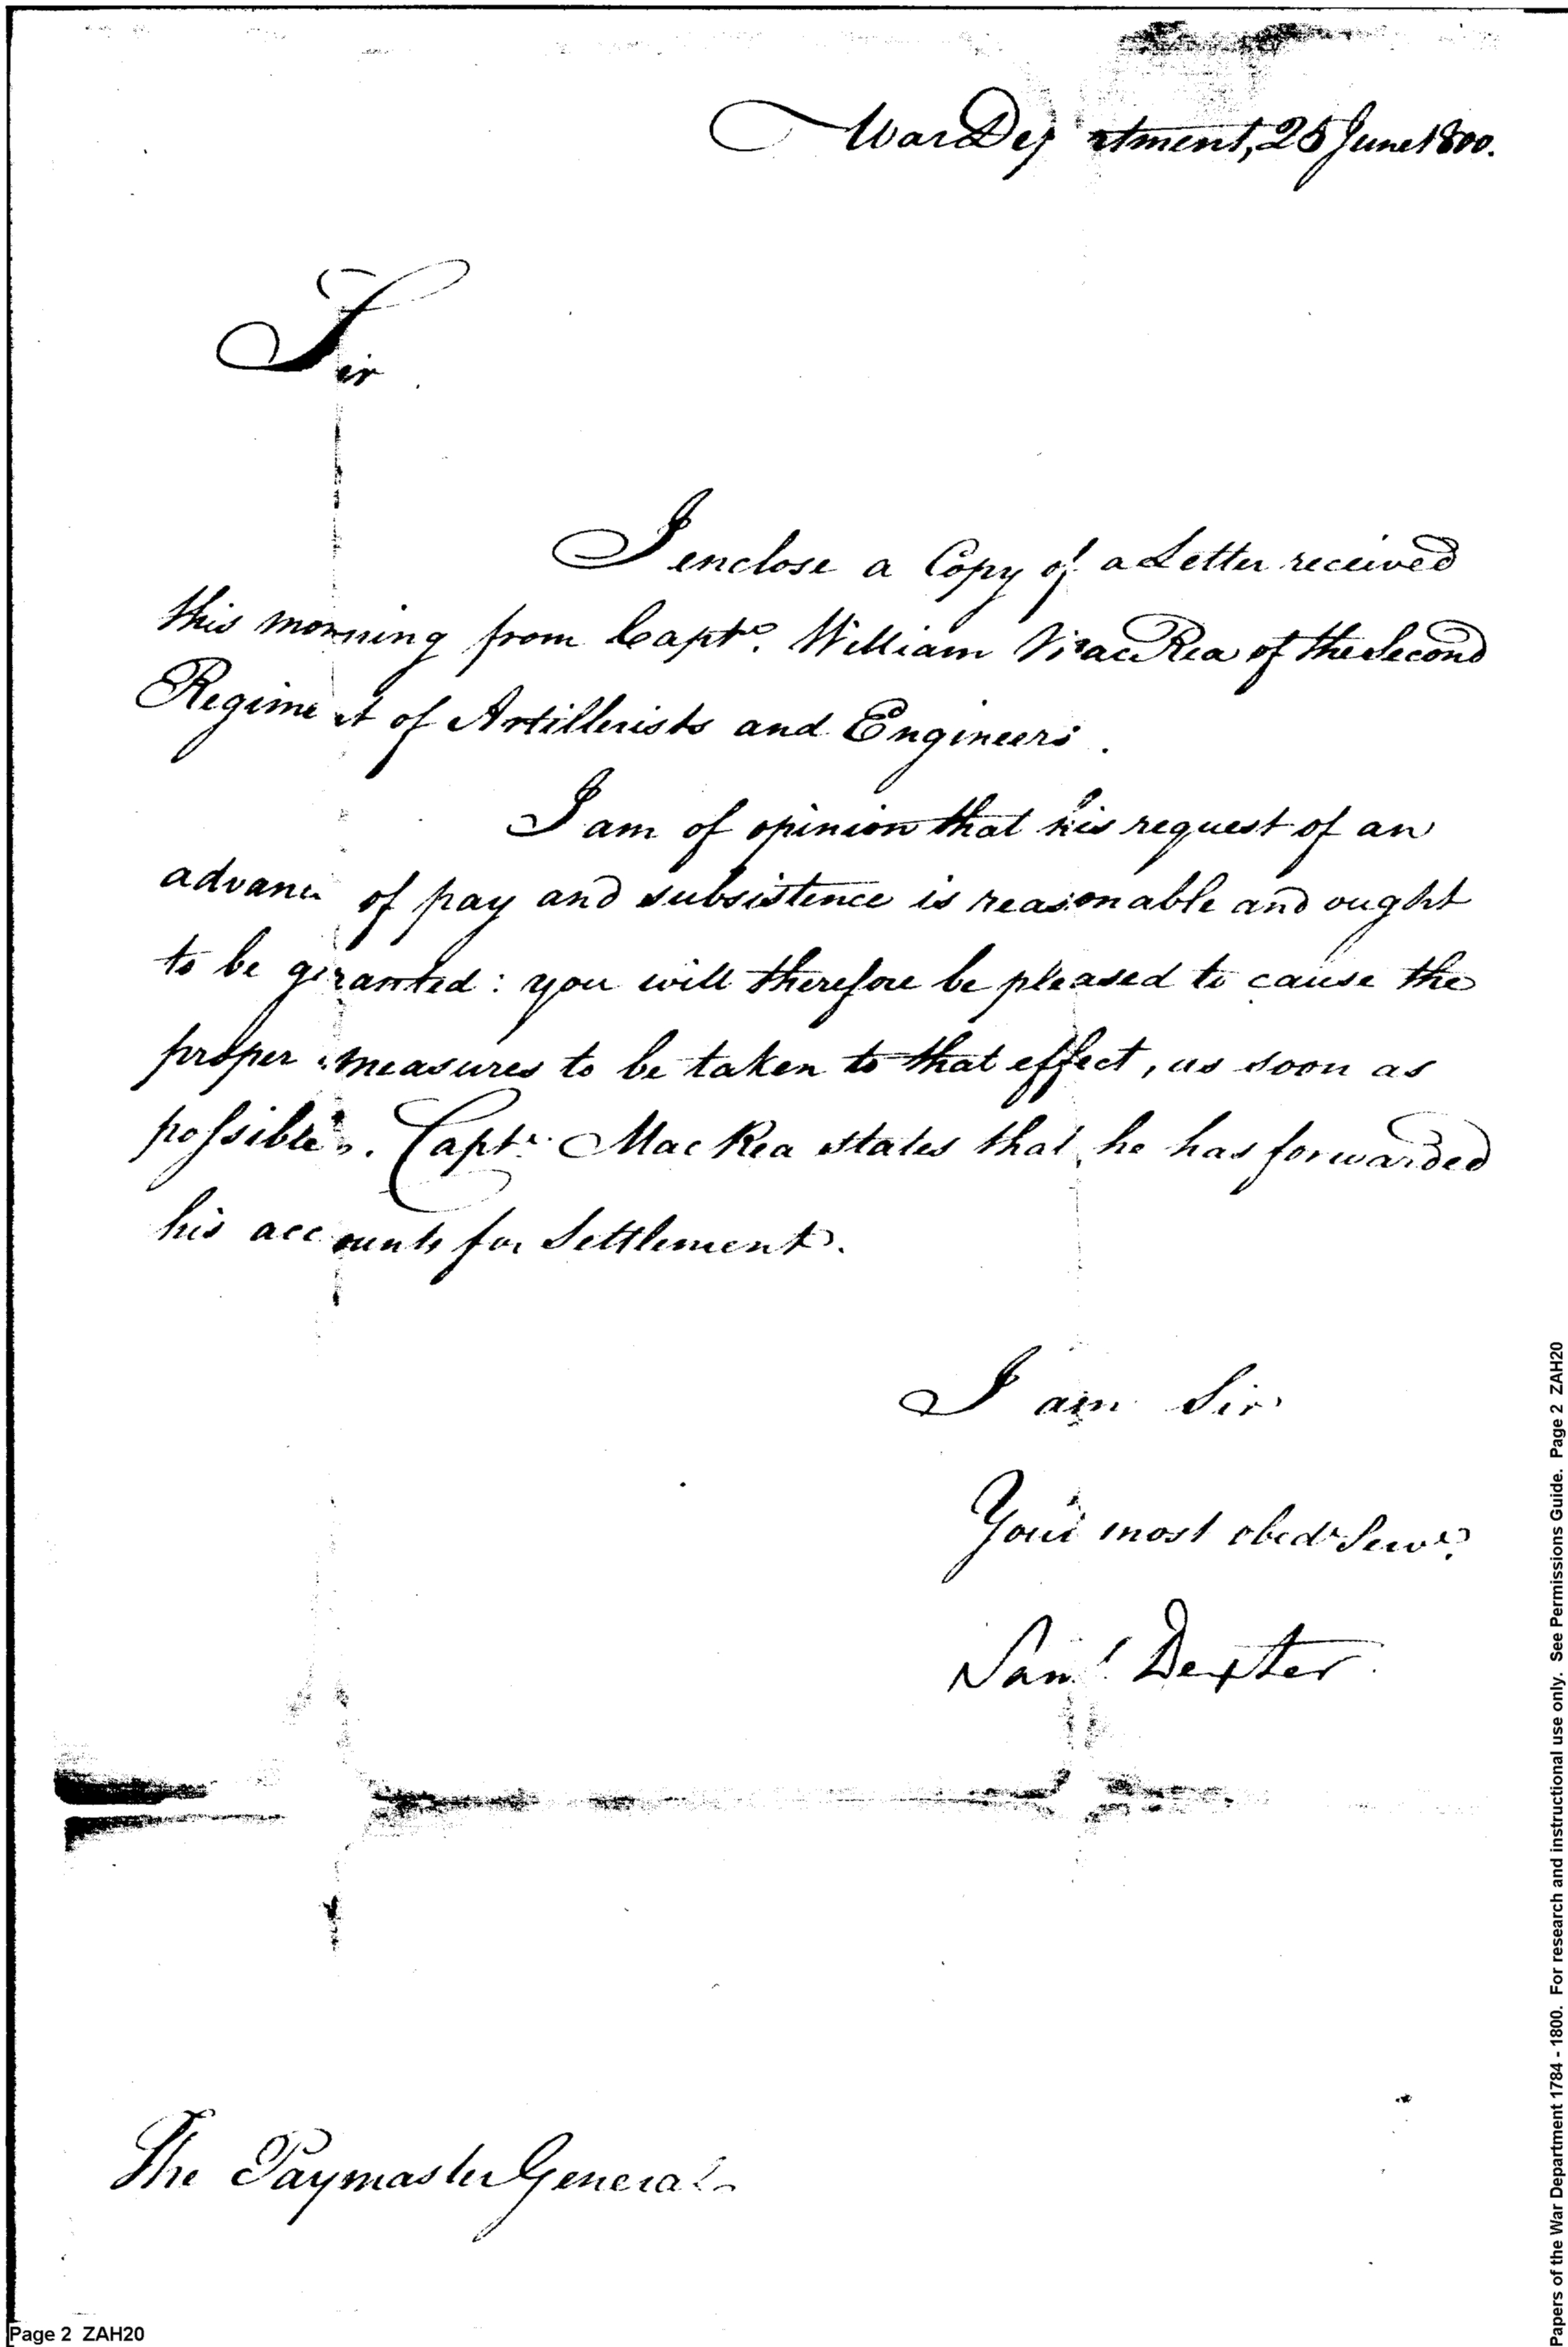 War Department, 25 June 1800.
Sir
I enclose a Copy of a Letter received
this morning from Capt. William MacRea of the Second
Regiment of Artillerists and Engineers.
I am of opinion that his request of an
advance of pay and subsistence is reasonable and ought
to be granted: you will therefore be pleased to cause the
proper measures to be taken to that effect, as soon as
possible. Capt. MacRea states that he has forwarded
his accounts for Settlement.
I am Sir
Your most obedt Servt.
Saml Dexter
The Paymaster General
Page 2 ZAH20
Papers of the War Department 1784 - 1800. For research and instructional use only. See Permissions Guide. Page 2 ZAH20